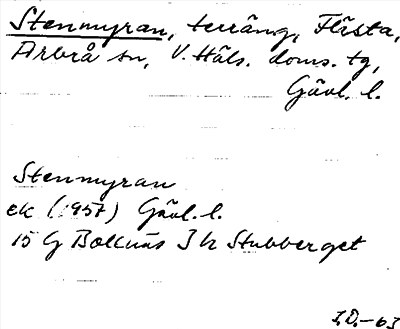 Stenmyran, terräng, Flästa,
Arbrå sn, V. Häls. doms. tg,
Gävl. l.
Stenmyran
ek (1957) Gävl. l.
15 G Bollnäs 3 h Stubberget
I.D.-63